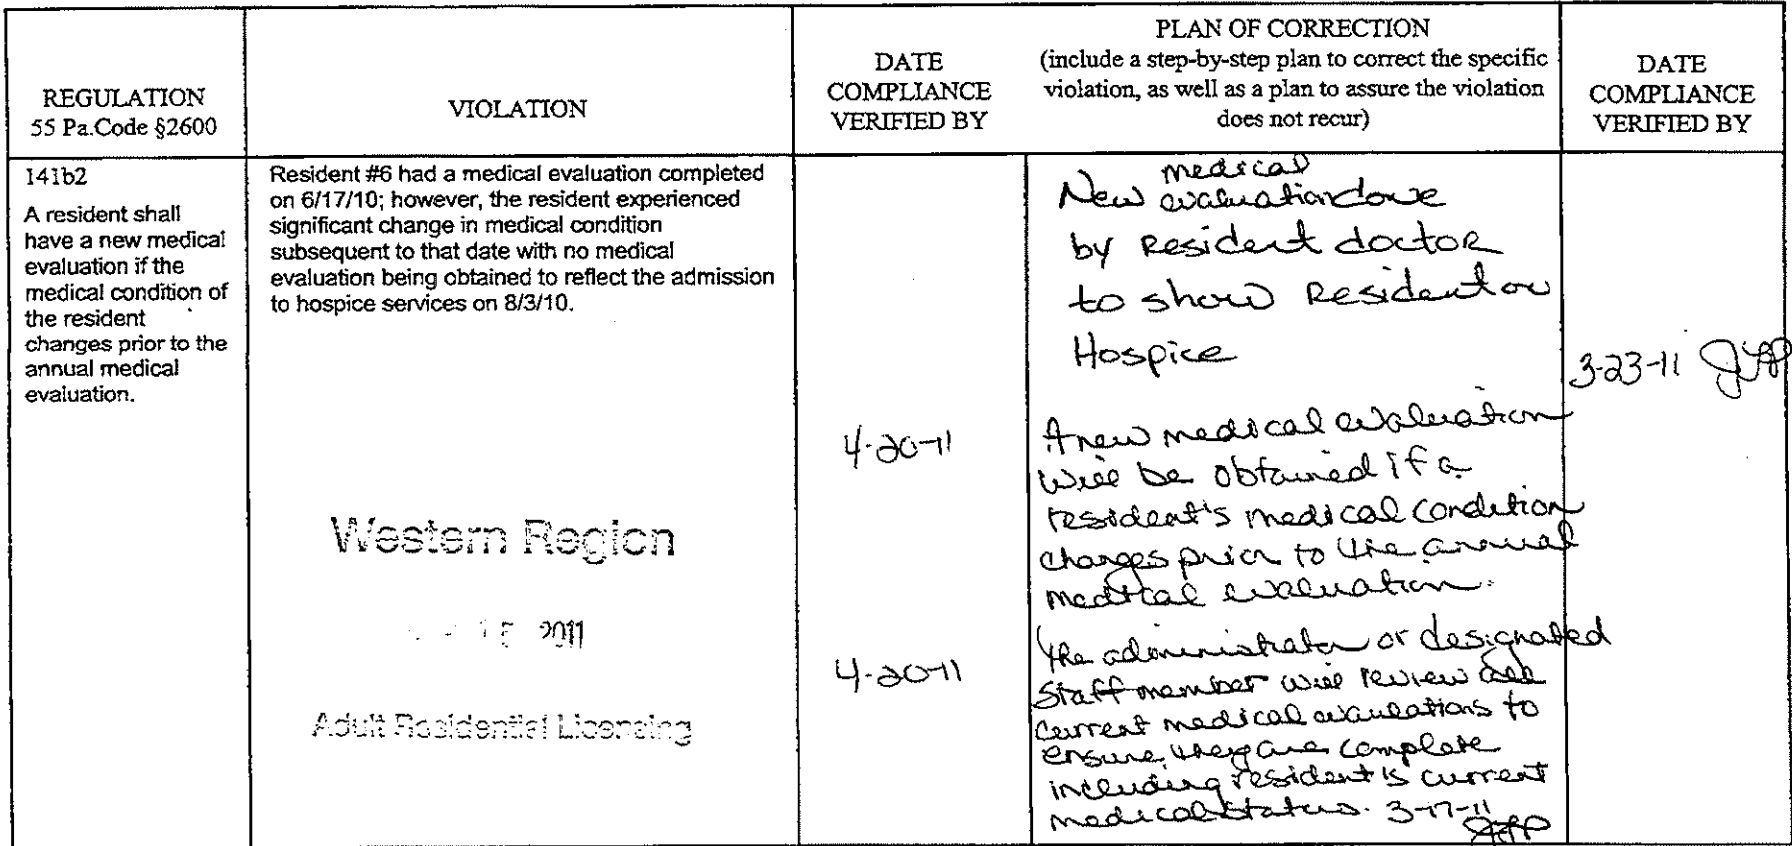 REGULATION
55 Pa.Code §2600
VIOLATION
DATE
COMPLIANCE
VERIFIED BY
PLAN OF CORRECTION
(include a step-by-step plan to correct the specific
violation, as well as a plan to assure the violation
does not recur)
DATE
COMPLIANCE
VERIFIED BY
141b2
A resident shall
have a new medical
evaluation if the
medical condition of
the resident
changes prior to the
annual medical
evaluation.
Resident #6 had a medical evaluation completed
on 6/17/10; however, the resident experienced
significant change in medical condition
subsequent to that date with no medical
evaluation being obtained to reflect the admission
to hospice services on 8/3/10.
Western Region
15 2011
Adult Residential Licensing
4-20-11
4-20-11
medical
New evaluation done
by Resident doctor
to show Resident on
Hospice
A new medical evaluation
will be obtained if a
resident's medical condition
changes prior to the annual
medical evaluation.
The administrator or designated
staff member will review all
current medical evaluations to
ensure they are complete
including resident's current
medical status. 3-17-11
3-23-11